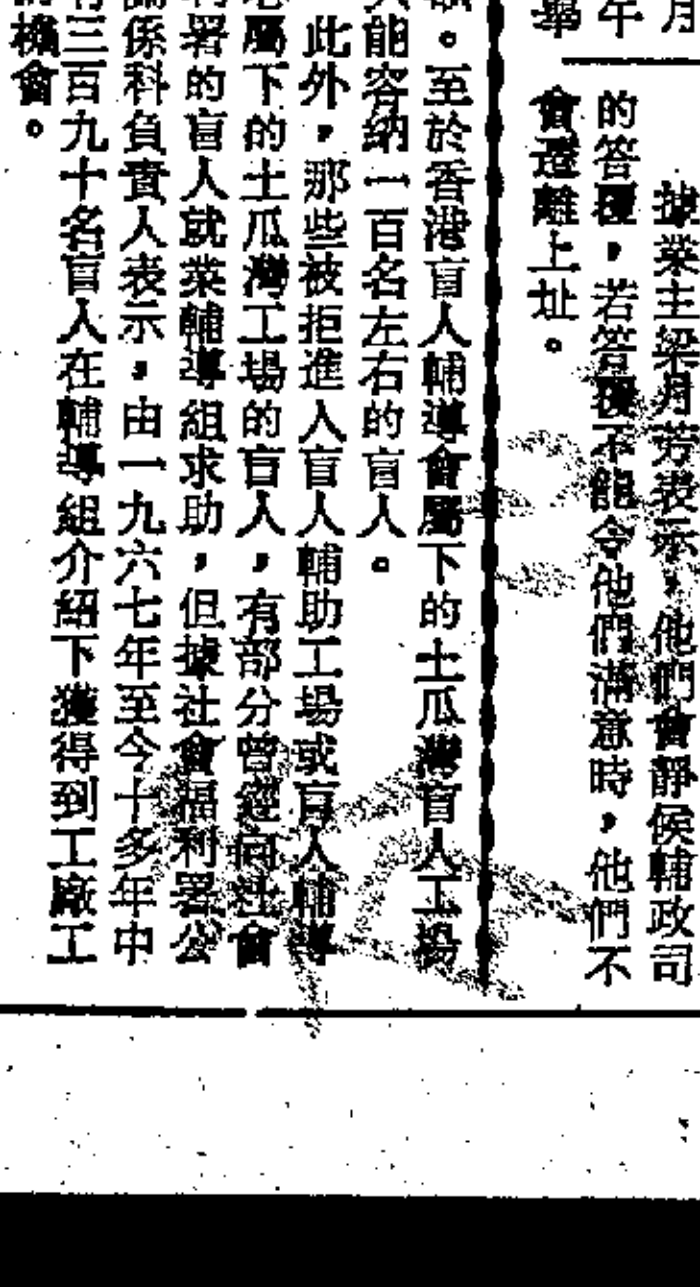 月
午
舉
據業主梁月芳表示，他們會靜侯輔政司
的答覆，若答覆不能令他們滿意時，他們不
會遷離上址。
。至於香港盲人輔導會屬下的土瓜灣盲人工場
能容納一百名左右的盲人。
此外，那些被拒進人盲人輔助工場或盲人輔導
屬下的土瓜灣工場的盲人，有部分曾經向社會
署的盲人就業輔導組求助，但據社會福利署公
係科負責人表示，由一九六七年至今十多年中
三百九十名盲人在輔導組介紹下獲得到工廠工
機會。